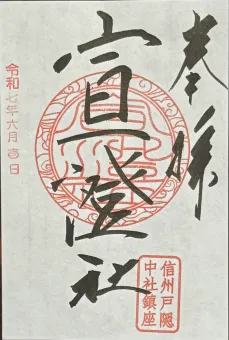 奉拝
宣澄社
信州戸隠
中社鎮座
令和七年六月吉日